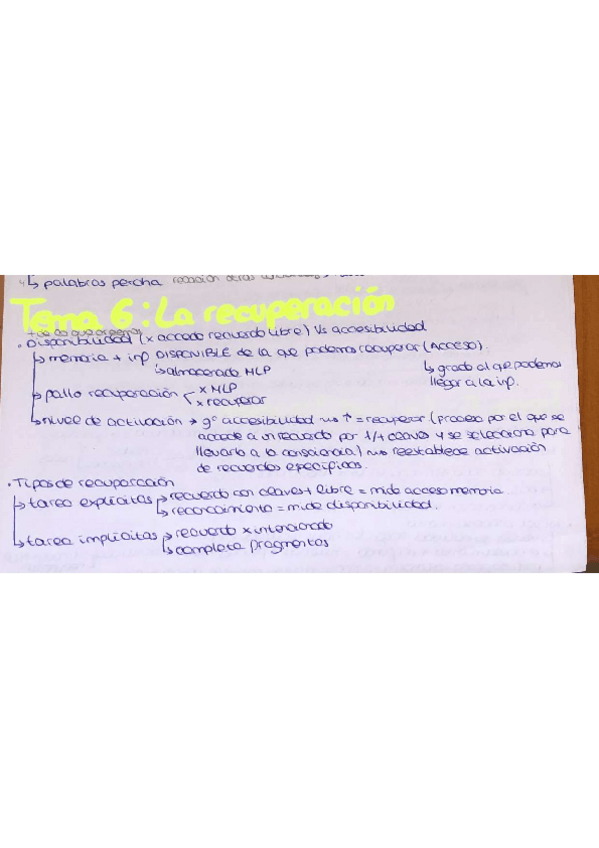 ↳ palabras percha relación otras
Tema 6: La recuperación
+ de lo que creemos
· Disponibilidad (x accedo recuerdo libre) Vs accesibilidad
↳ memoria + inf DISPONIBLE de la q̃e podemos recuperar (Acceso).
↳ almacenado MLP
↳ grado al q̃e podemos llegar a la inf.
↳ fallo recuperación < x MLP
x recuperar
↳ nivel de activación → gº accesibilidad ↑ = recuperar (proceso por el que se
accede a un recuerdo por 1/+ claves y se selecciona para
llevarlo a la consciencia) reestablece activación
de recuerdos específicos.
· Tipos de recuperación
↳ tarea explícitas ↳ recuerdo con claves + libre = mide acceso memoria
↳ reconocimiento = mide disponibilidad.
↳ tarea implícitas ↳ recuerdo x intencionado
↳ completa fragmentos